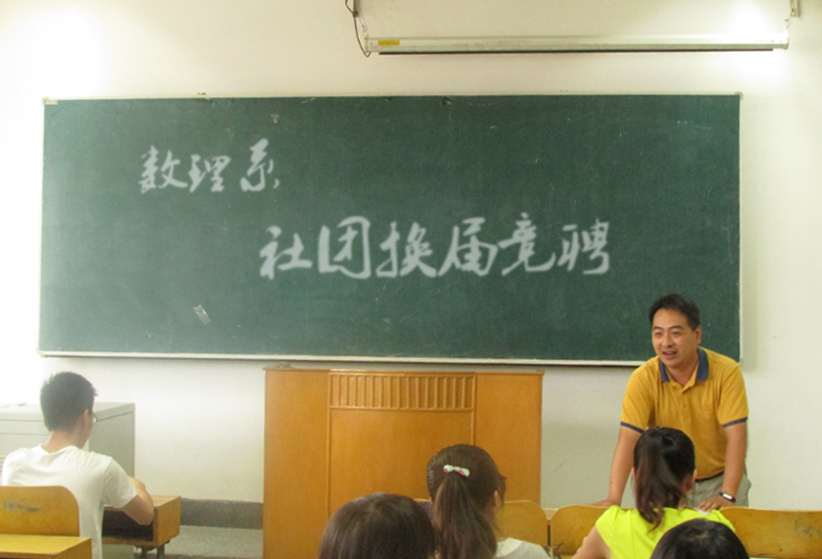 数理系
社团换届竟聘